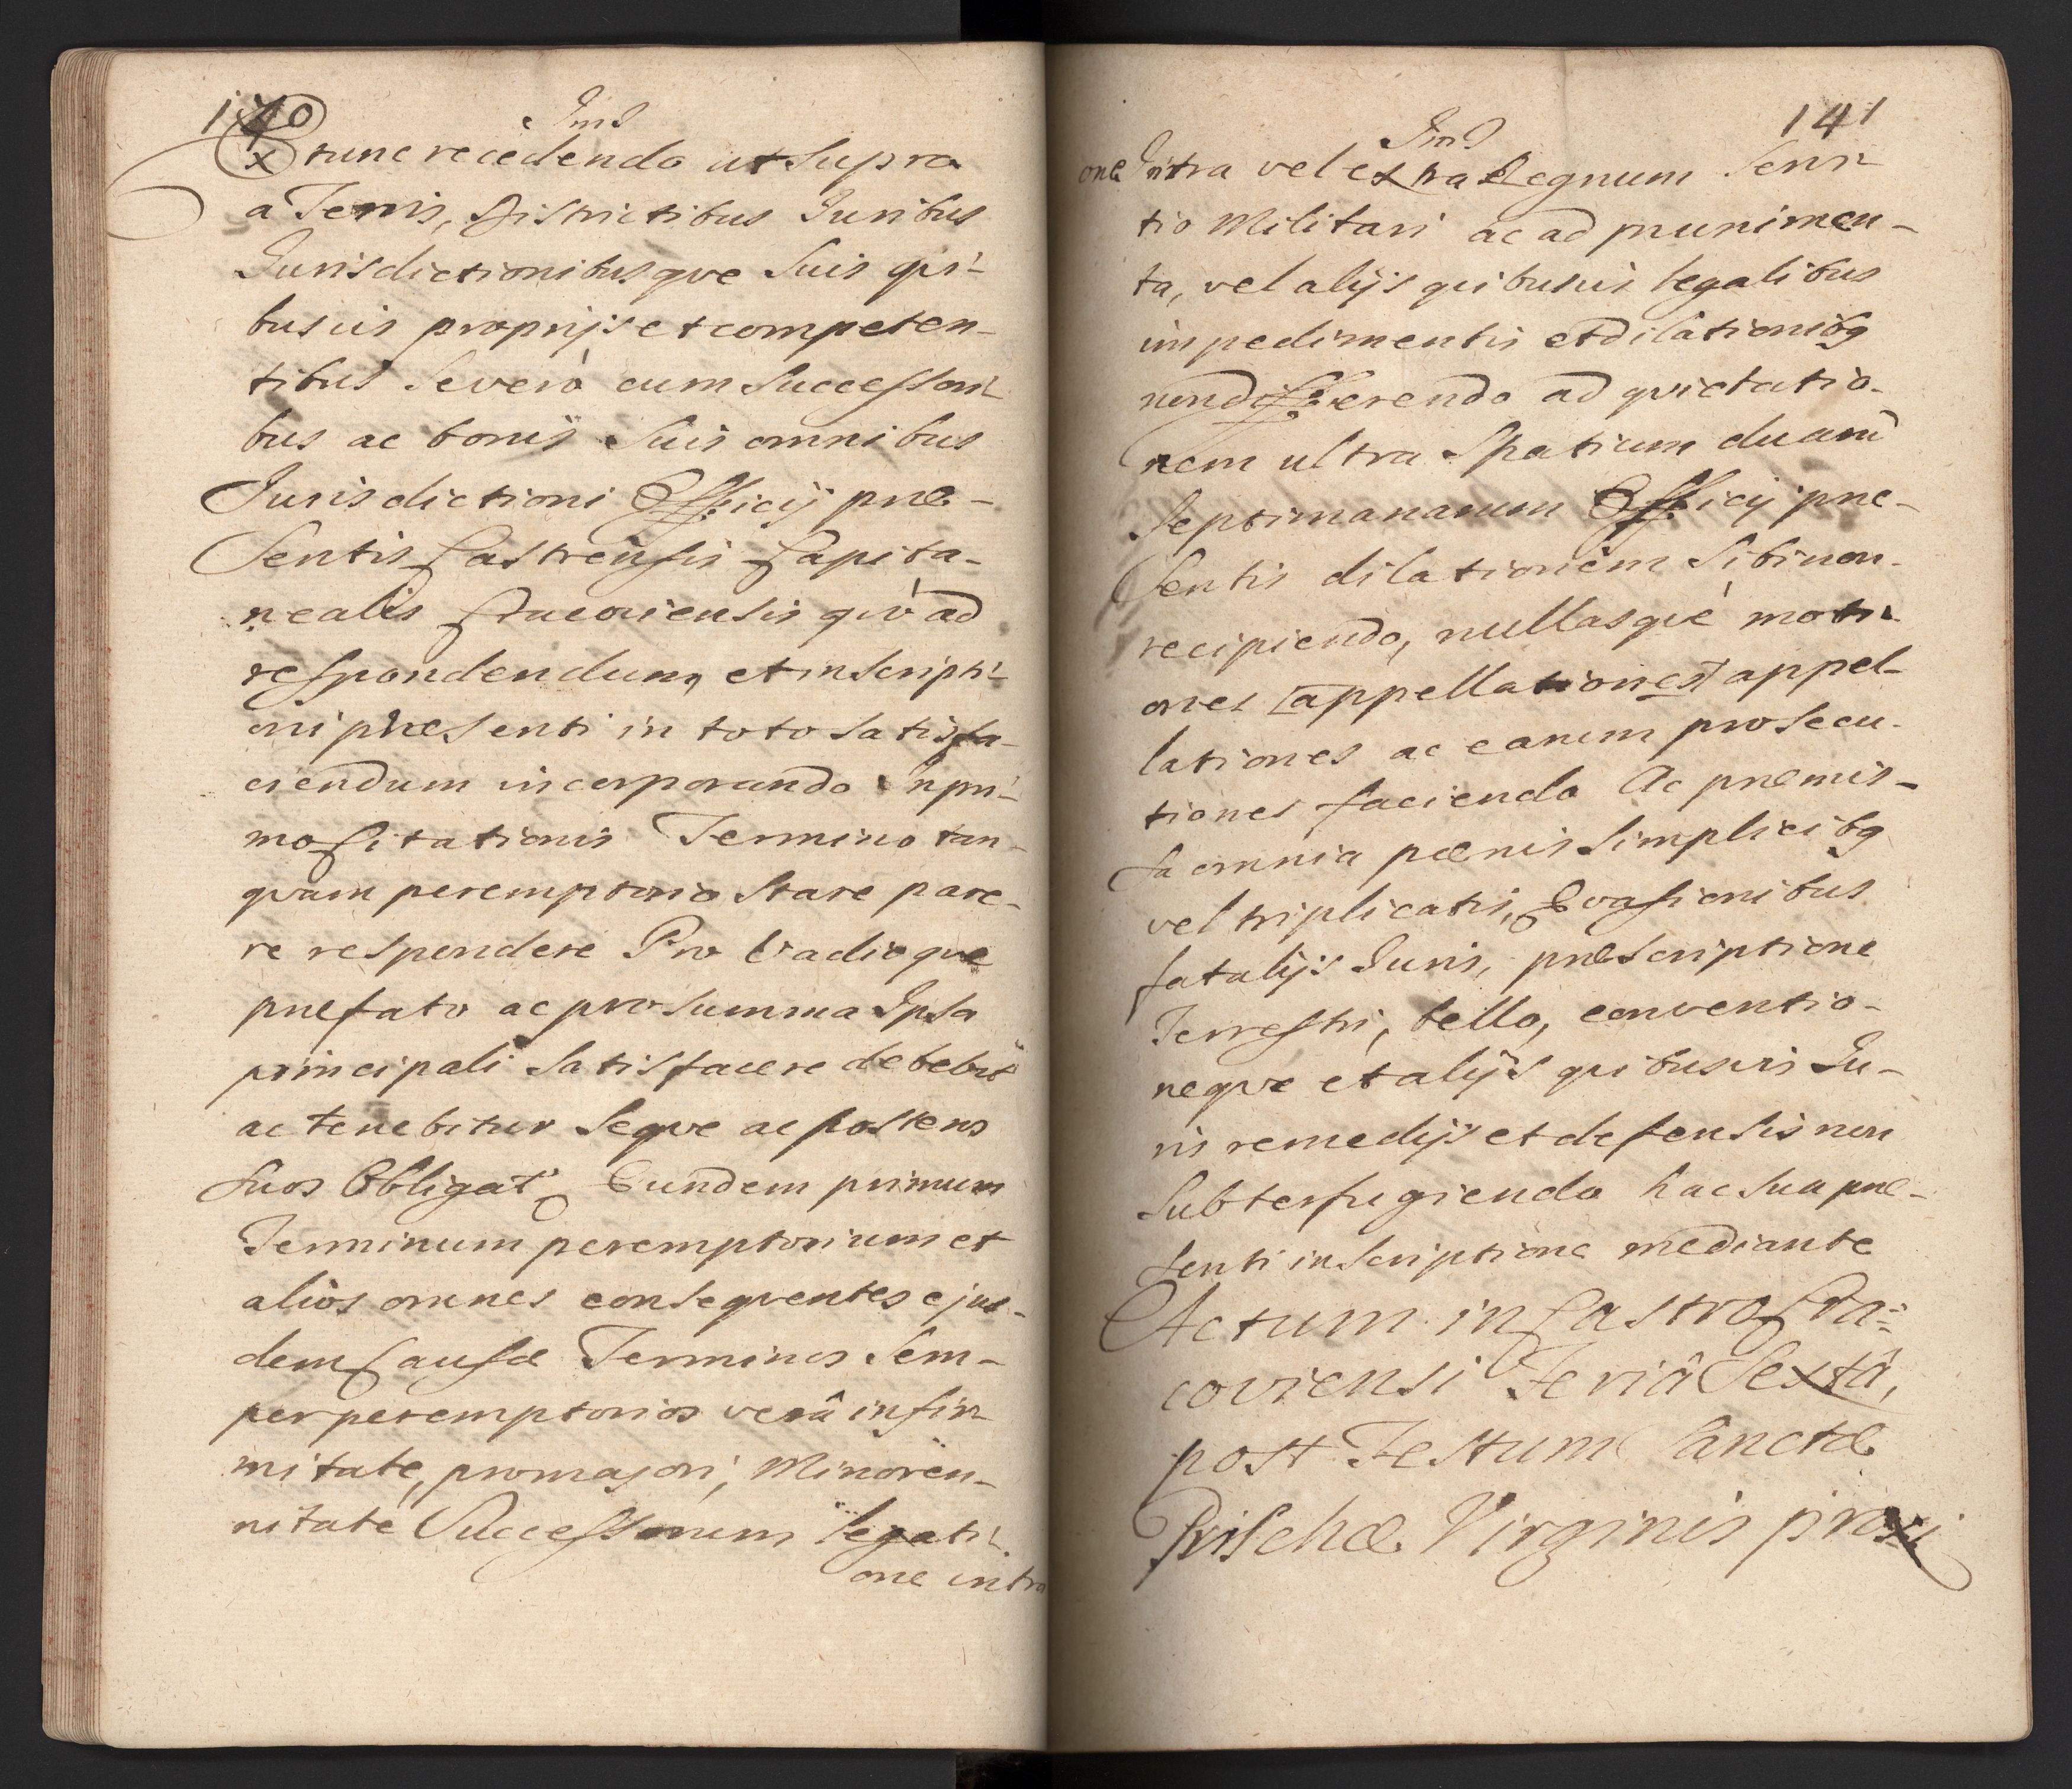 140
Ims
Ex tunc recedendo ut supra
a Terris, Districtibus Juribus
Jurisdictionibusque Suis qvi-
busvis proprijs et competen-
tibus Severò cum Successori-
bus ac bonis Suis omnibus
Jurisdictioni Officij præ-
Sentis Castrensis Capita-
nealis Cracoviensis qvò ad
respondendum, et inscripti-
oni præsenti in toto satisfa-
ciendum incorporando Inpri-
mo Citationis Termino tan-
qvam peremptorio Stare pare-
re respondere Pro Vadioque
præfato ac pro Summa Ipsa
principali Satisfacere debebit
ac tenebitur Seqve ac posteros
Suos Obligat, Eundem primum
Terminum peremptorium et
aliòs omnes conseqventes ejus-
dem Causæ Terminos Sem-
per peremptorios verâ infir-
mitate, pro majori, Minoren-
nitate Successorum legati-
one intra
141
Ims
one Intra vel extra Regnum Servi-
tio Militari ac ad munimen-
ta, vel alijs qvibusvis legalibus
impedimentis et dilationibq
non differendo ad qvietatio-
nem ultra Spatium duarū
Septimanarum Officij præ-
Sentis dilationem Sibi non-
recipiendo, nullasqvè moti-
ones [appellationes] appel-
lationes ac earum prosecu-
tiones faciendo Ac præmis-
sa omnia pœnis Simplicibq
vel triplicatis, Evasionibus
fatalijs Juris, præscriptione
Terrestri, bello, conventio-
neqve et alijs qvibusvis Ju-
ris remedijs et defensis non
Subterfugiendo hac Sua præ-
Senti inscriptione mediante
Actum in Castro Cra-
coviensi Feriâ Sextâ,
post Festum Sanctæ
Prischæ Virginis proxi